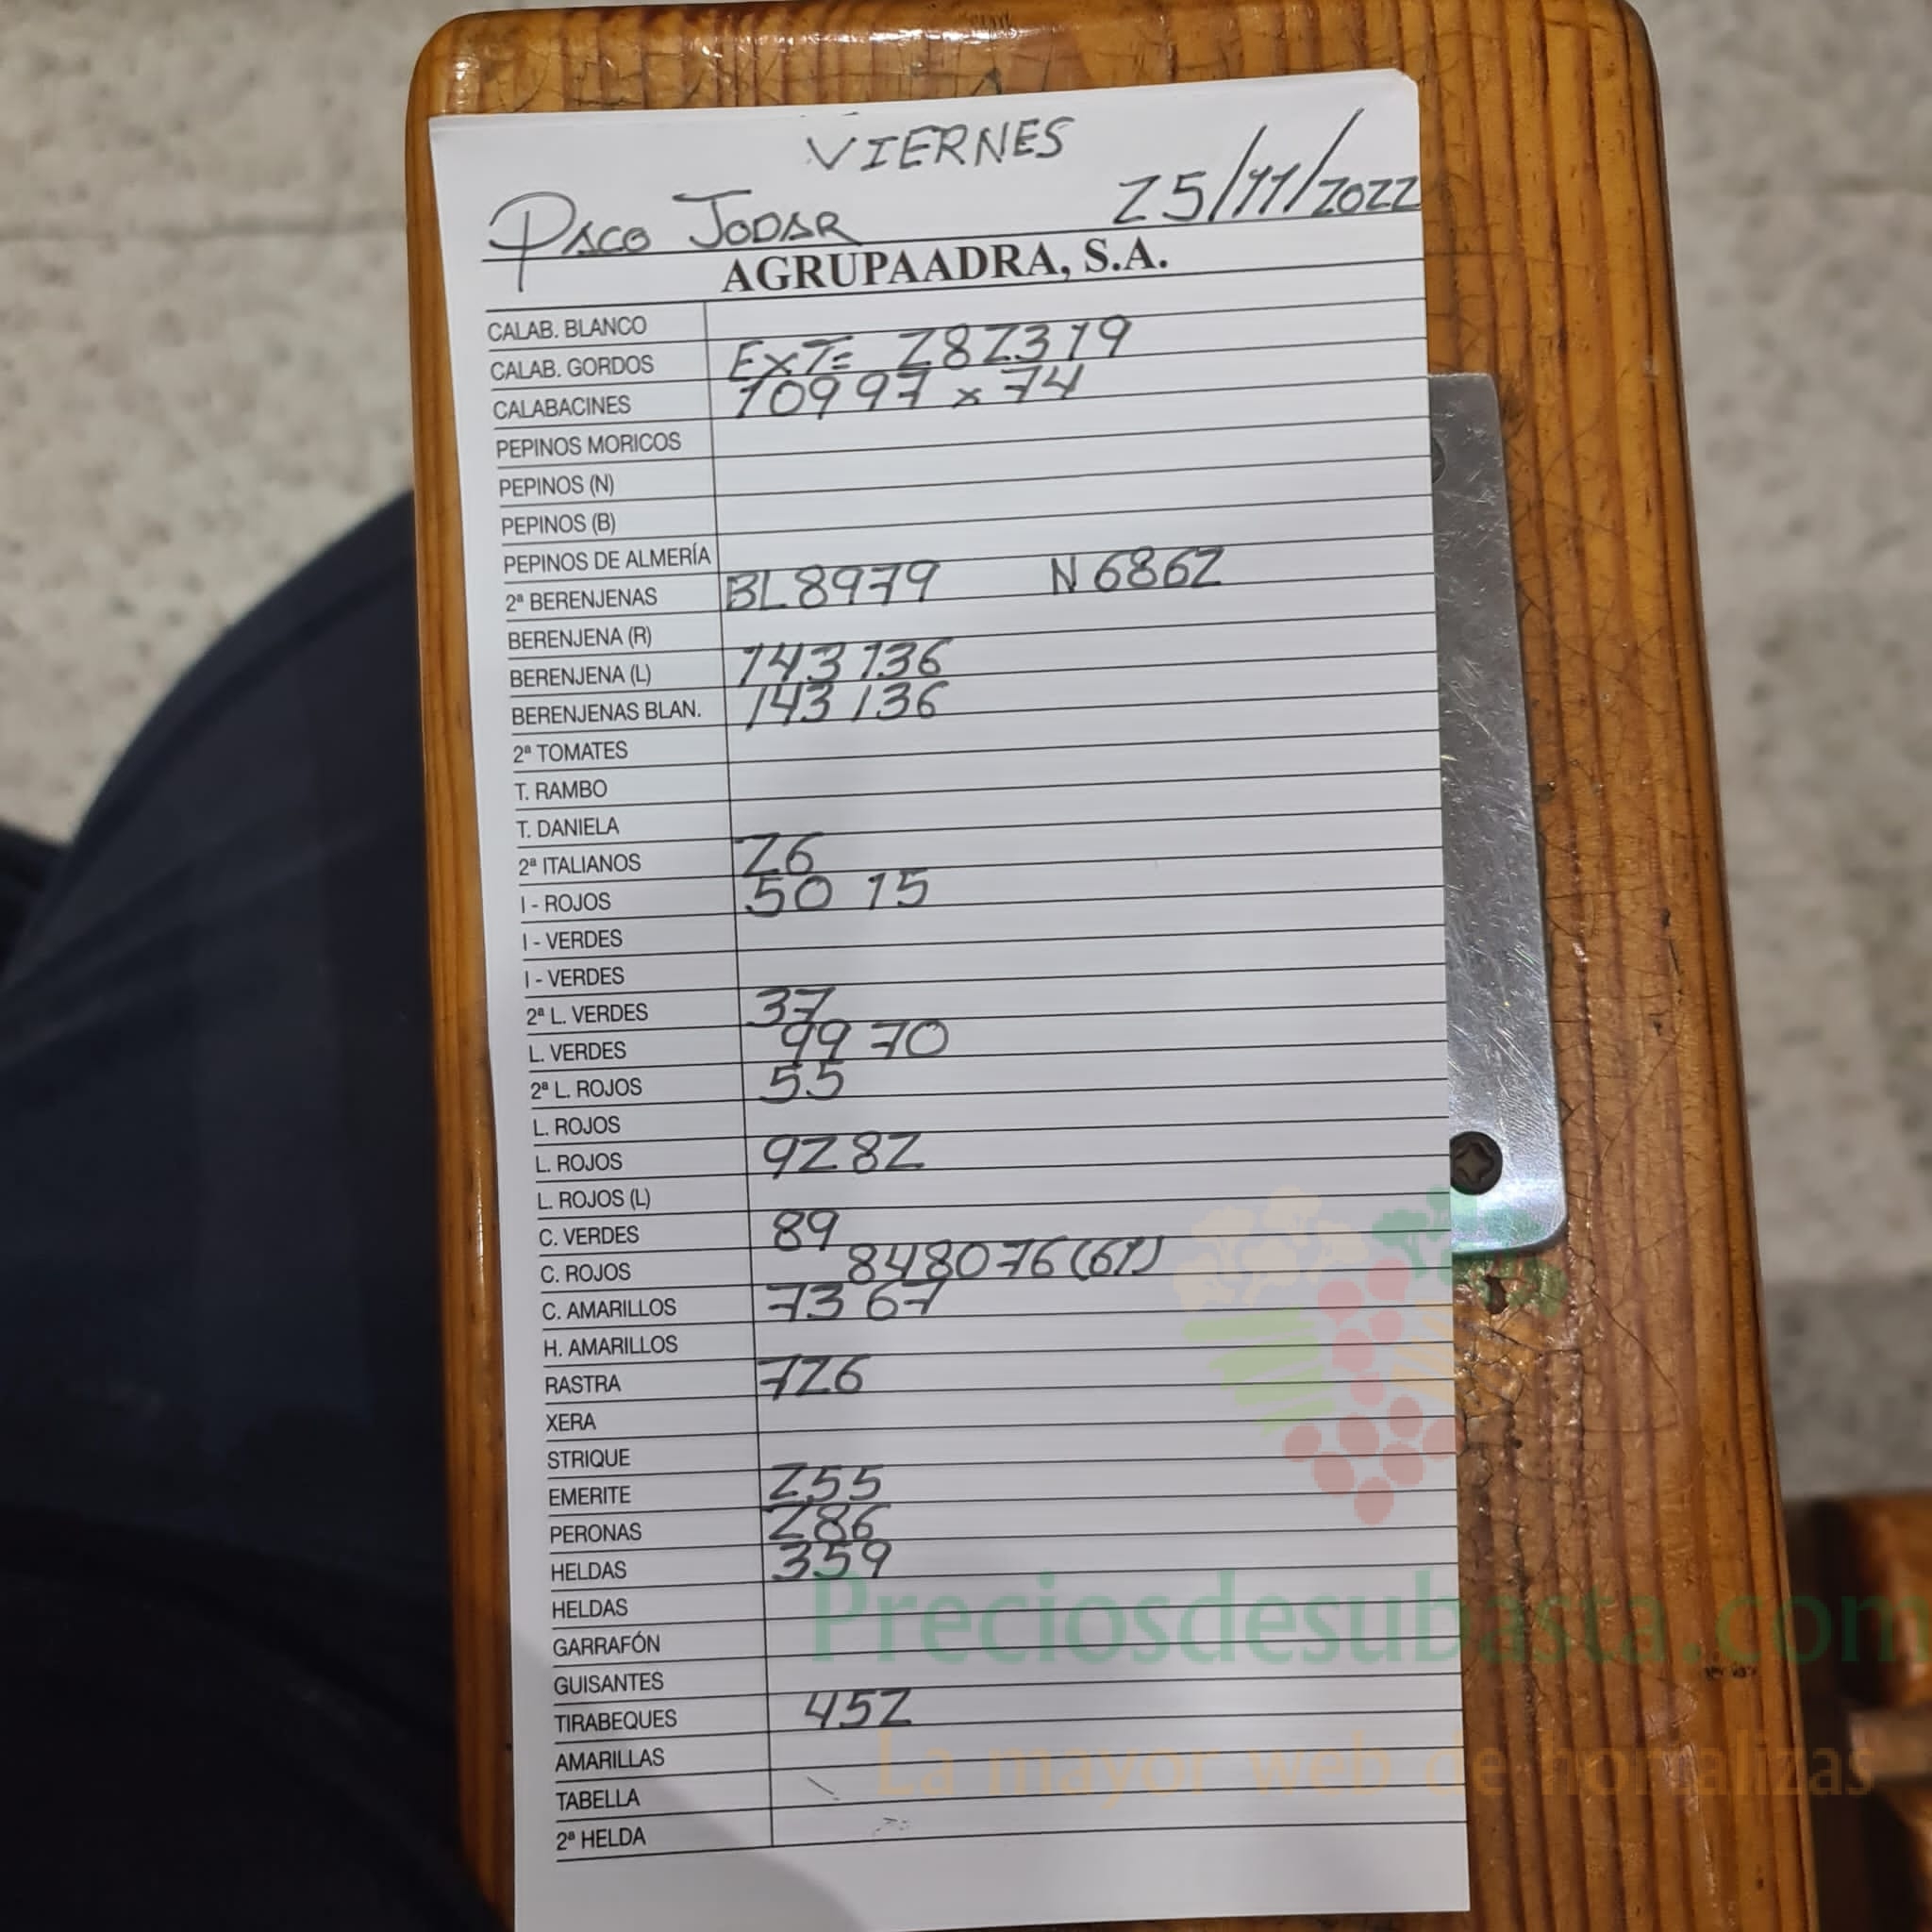 VIERNES
PACO JODAR 25/11/2022
AGRUPAADRA, S.A.
CALAB. BLANCO
CALAB. GORDOS EXT= 282319
CALABACINES 10997 x 74
PEPINOS MORICOS
PEPINOS (N)
PEPINOS (B)
PEPINOS DE ALMERÍA
2ª BERENJENAS BL8979 N6862
BERENJENA (R)
BERENJENA (L) 143 136
BERENJENAS BLAN. 143 136
2ª TOMATES
T. RAMBO
T. DANIELA
2ª ITALIANOS 26
I - ROJOS 50 15
I - VERDES
I - VERDES
2ª L. VERDES 37
L. VERDES 99 70
2ª L. ROJOS 55
L. ROJOS
L. ROJOS 92 82
L. ROJOS (L)
C. VERDES 89
C. ROJOS 84 80 76 (61)
C. AMARILLOS 73 67
H. AMARILLOS
RASTRA 726
XERA
STRIQUE
EMERITE 255
PERONAS 286
HELDAS 359
HELDAS
GARRAFÓN
GUISANTES
TIRABEQUES 452
AMARILLAS
TABELLA
2ª HELDA
Preciosdesubasta.com
La mayor web de hortalizas